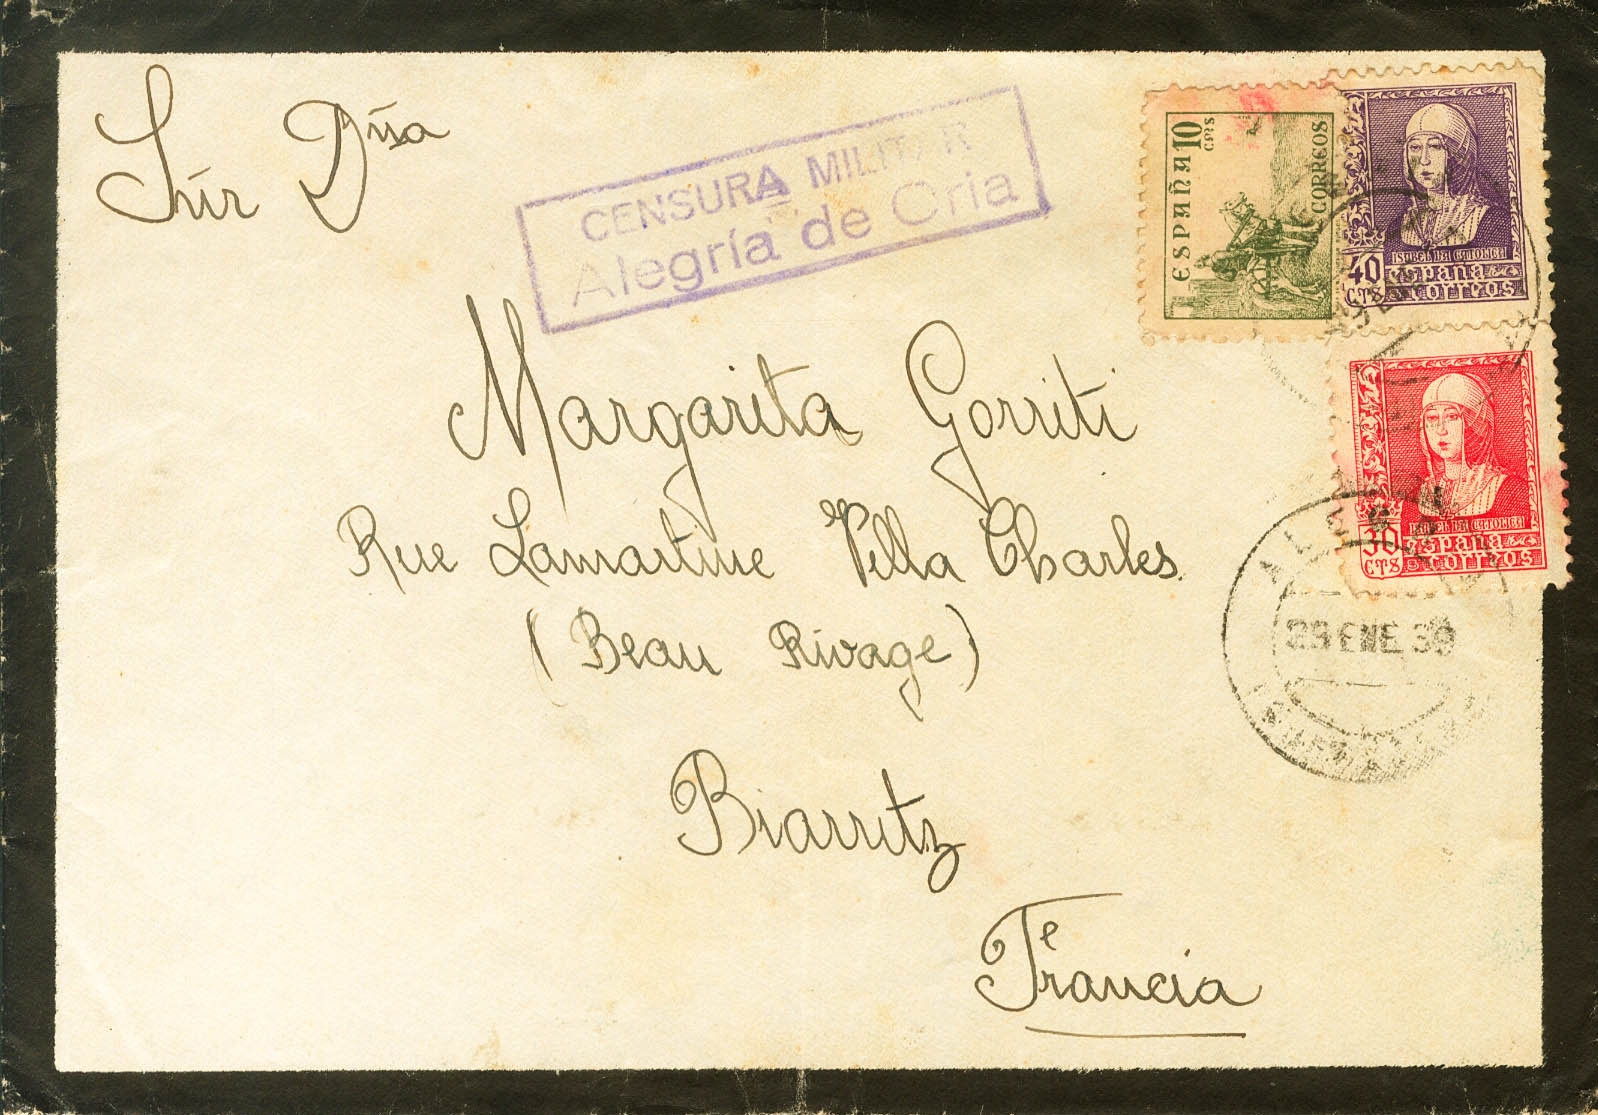 Sñr Dña
CENSURA MILITAR
Alegría de Oria
ESPAÑA 10 cms
CORREOS
ISABEL LA CATOLICA
40 España
CTS Correos
Margarita Gorriti
ISABEL LA CATOLICA
30 España
CTS Correos
Rue Lamartine Villa Charles
(Beau Rivage)
ENE 39
Biarritz
Francia